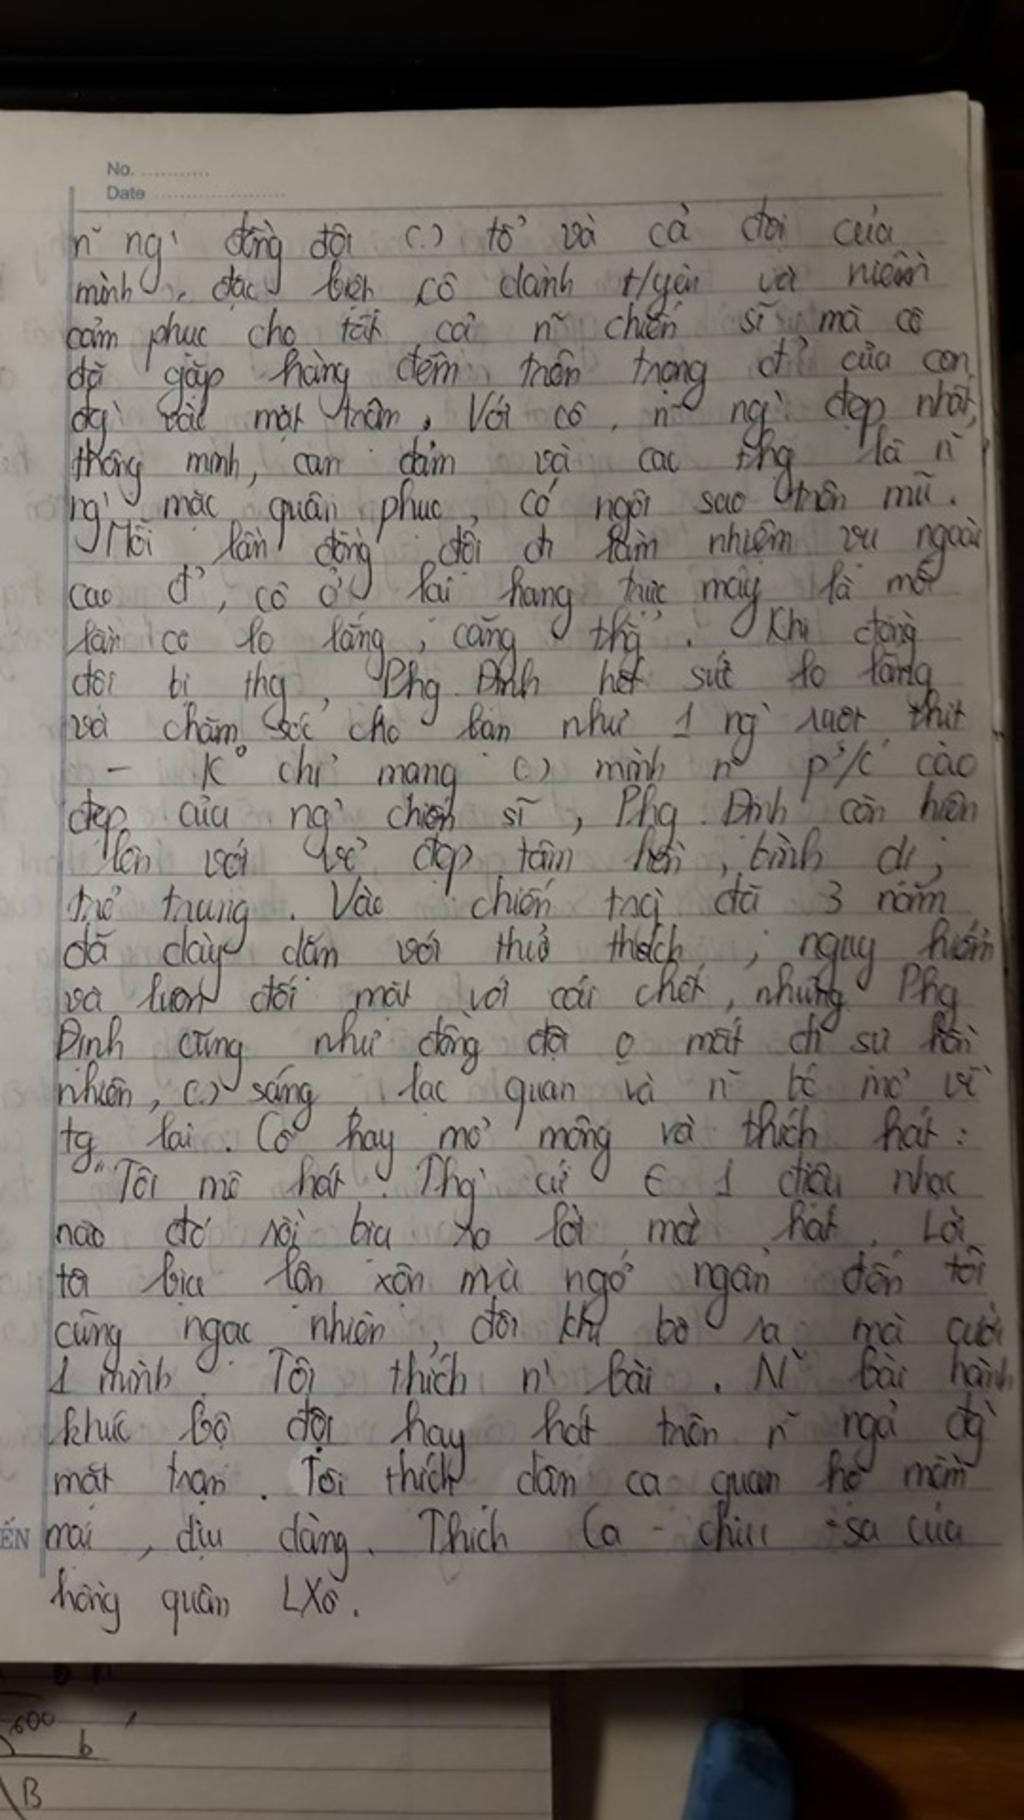 No. ............
Date ........................
n~ ng` đồng đội (.) tổ và cả đội của
mình, đặc biệt cô dành t/yêu và niềm
cảm phục cho tất cả n~ chiến sĩ mà cô
đã gặp hàng đêm trên trọng đ' của con
đg` vào mặt trận. Với cô, n~ ng` đẹp nhất,
thông minh, can đảm và cao thg là n~
ng` mặc quân phục, có ngôi sao trên mũ.
Mỗi lần đồng đội đi làm nhiệm vụ ngoài
cao đ', cô ở lại hang trực máy là mỗi
lần cô lo lắng, căng thg. Khi đồng
đội bị thg, Phg Định hết sức lo lắng
và chăm sóc cho bạn như 1 ng` ruột thịt
- K° chỉ mang (.) mình n~ p³/c' cao
đẹp của ng` chiến sĩ, Phg Định còn hiện
lên với vẻ đẹp tâm hồn, bình dị,
trẻ trung. Vào chiến trg` đã 3 năm
đã dày dặn với thử thách, nguy hiểm
và luôn đối mặt với cái chết, nhưng Phg
Định cũng như đồng đội o mất đi sự hồn
nhiên, (.) sáng lạc quan và n~ bé mơ về
tg lai. Cô hay mơ mộng và thích hát:
"Tôi mê hát. Thg` cứ € 1 điệu nhạc
nào đó rồi bịa ra lời mà hát. Lời
tôi bịa lộn xộn mà ngớ ngẩn đến tôi
cũng ngạc nhiên, đôi khi bò ra mà cười
1 mình. Tôi thích n` bài. N~ bài hành
khúc bộ đội hay hát trên n~ ngả đg`
mặt trận. Tôi thích dân ca quan họ mềm
mại, dịu dàng. Thích Ca-chiu-sa của
hồng quân LXô.
ẾN
600
b
B